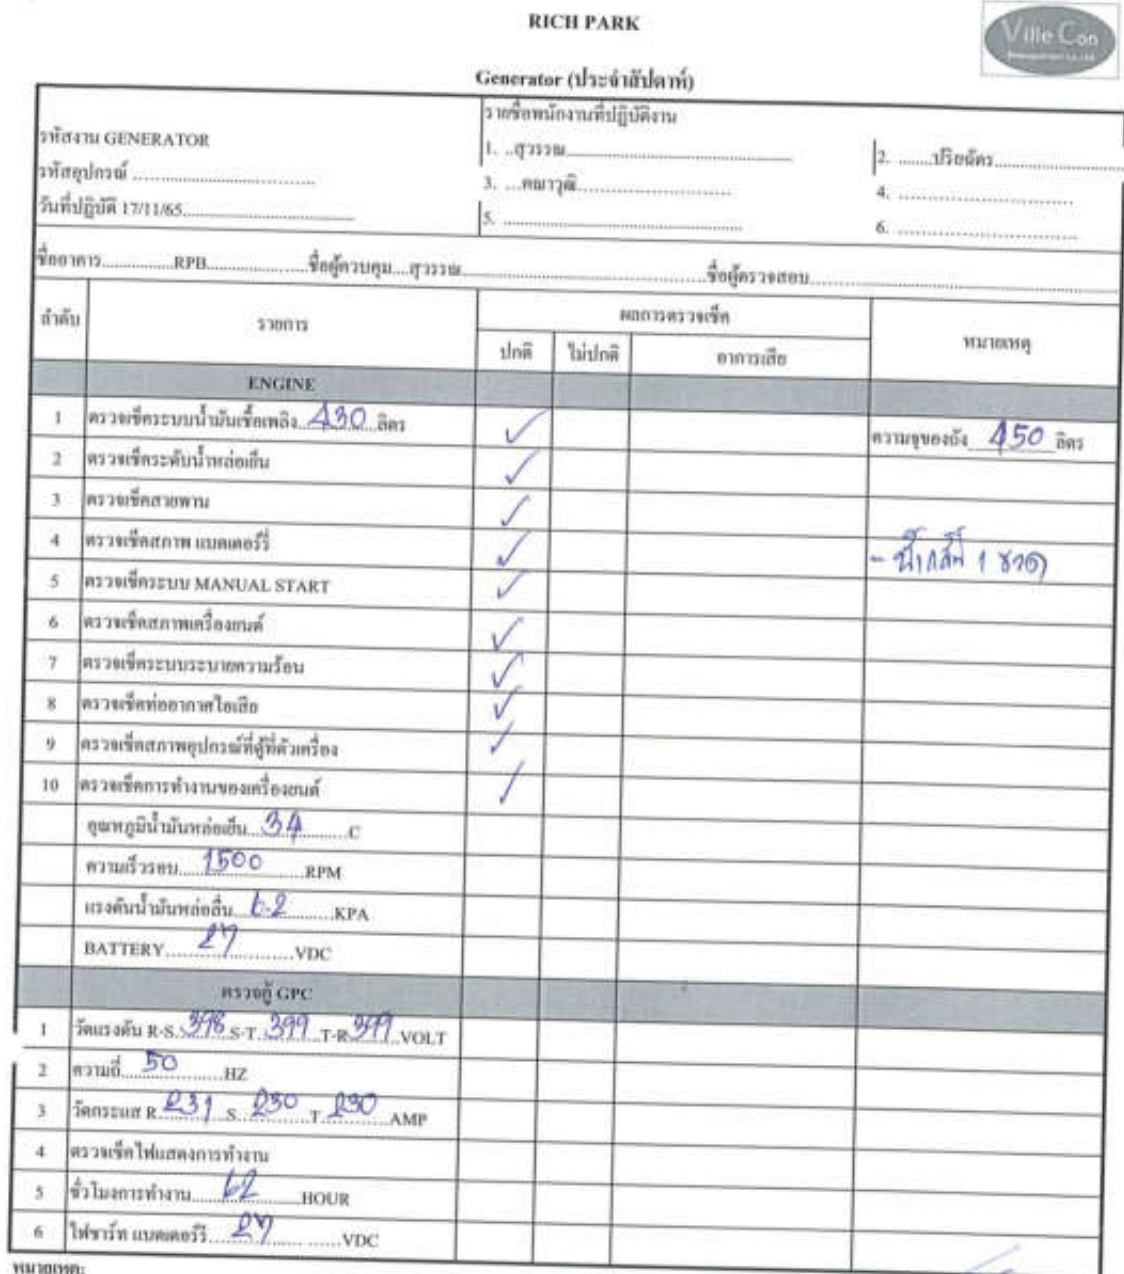 RICH PARK
Ville Con
Generator (ประจำสัปดาห์)
รหัสงาน GENERATOR
รหัสอุปกรณ์ ........................................
วันที่ปฏิบัติ 17/11/65........................................
รายชื่อพนักงานที่ปฏิบัติงาน
1. ..สุวรรณ........................................
2. ........ปริยฉัตร........................................
3. ....คณาวุฒิ........................................
4. ........................................
5. ........................................
6. ........................................
ชื่ออาคาร.................RPB........................ชื่อผู้ควบคุม....สุวรรณ........................................ชื่อผู้ตรวจสอบ........................................
ลำดับ รายการ ผลการตรวจเช็ค หมายเหตุ
ปกติ ไม่ปกติ อาการเสีย
ENGINE
1 ตรวจเช็คระบบน้ำมันเชื้อเพลิง 430 ลิตร ✓ ความจุของถัง 450 ลิตร
2 ตรวจเช็คระดับน้ำหล่อเย็น ✓
3 ตรวจเช็คสายพาน ✓
4 ตรวจเช็คสภาพ แบตเตอร์รี่ ✓ - น้ำกลั่น 1 ขวด
5 ตรวจเช็คระบบ MANUAL START ✓
6 ตรวจเช็คสภาพเครื่องยนต์ ✓
7 ตรวจเช็คระบบระบายความร้อน ✓
8 ตรวจเช็คท่ออากาศไอเสีย ✓
9 ตรวจเช็คสภาพอุปกรณ์ที่ตู้ที่ตัวเครื่อง ✓
10 ตรวจเช็คการทำงานของเครื่องยนต์ ✓
อุณหภูมิน้ำมันหล่อเย็น...34..........C
ความเร็วรอบ......1500..........RPM
แรงดันน้ำมันหล่อลื่น...6.2..........KPA
BATTERY.......27..............VDC
ตรวจตู้ GPC
1 วัดแรงดัน R-S. 398 S-T. 399 T-R 399 VOLT
2 ความถี่.....50............HZ
3 วัดกระแส R 231 S 230 T 230 AMP
4 ตรวจเช็คไฟแสดงการทำงาน
5 ชั่วโมงการทำงาน.......62..........HOUR
6 ไฟชาร์ท แบตเตอร์รี่.....27............VDC
หมายเหตุ: